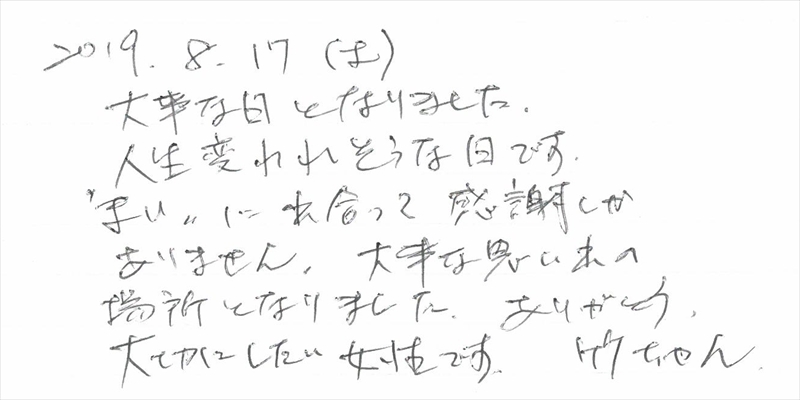 2019. 8. 17 (土)
大事な日となりました.
人生変われれそうな日です.
"まい" に出合って 感謝しか
ありません. 大事な思い出の
場所となりました. ありがとう.
大切にしたい女性です. けんちゃん.